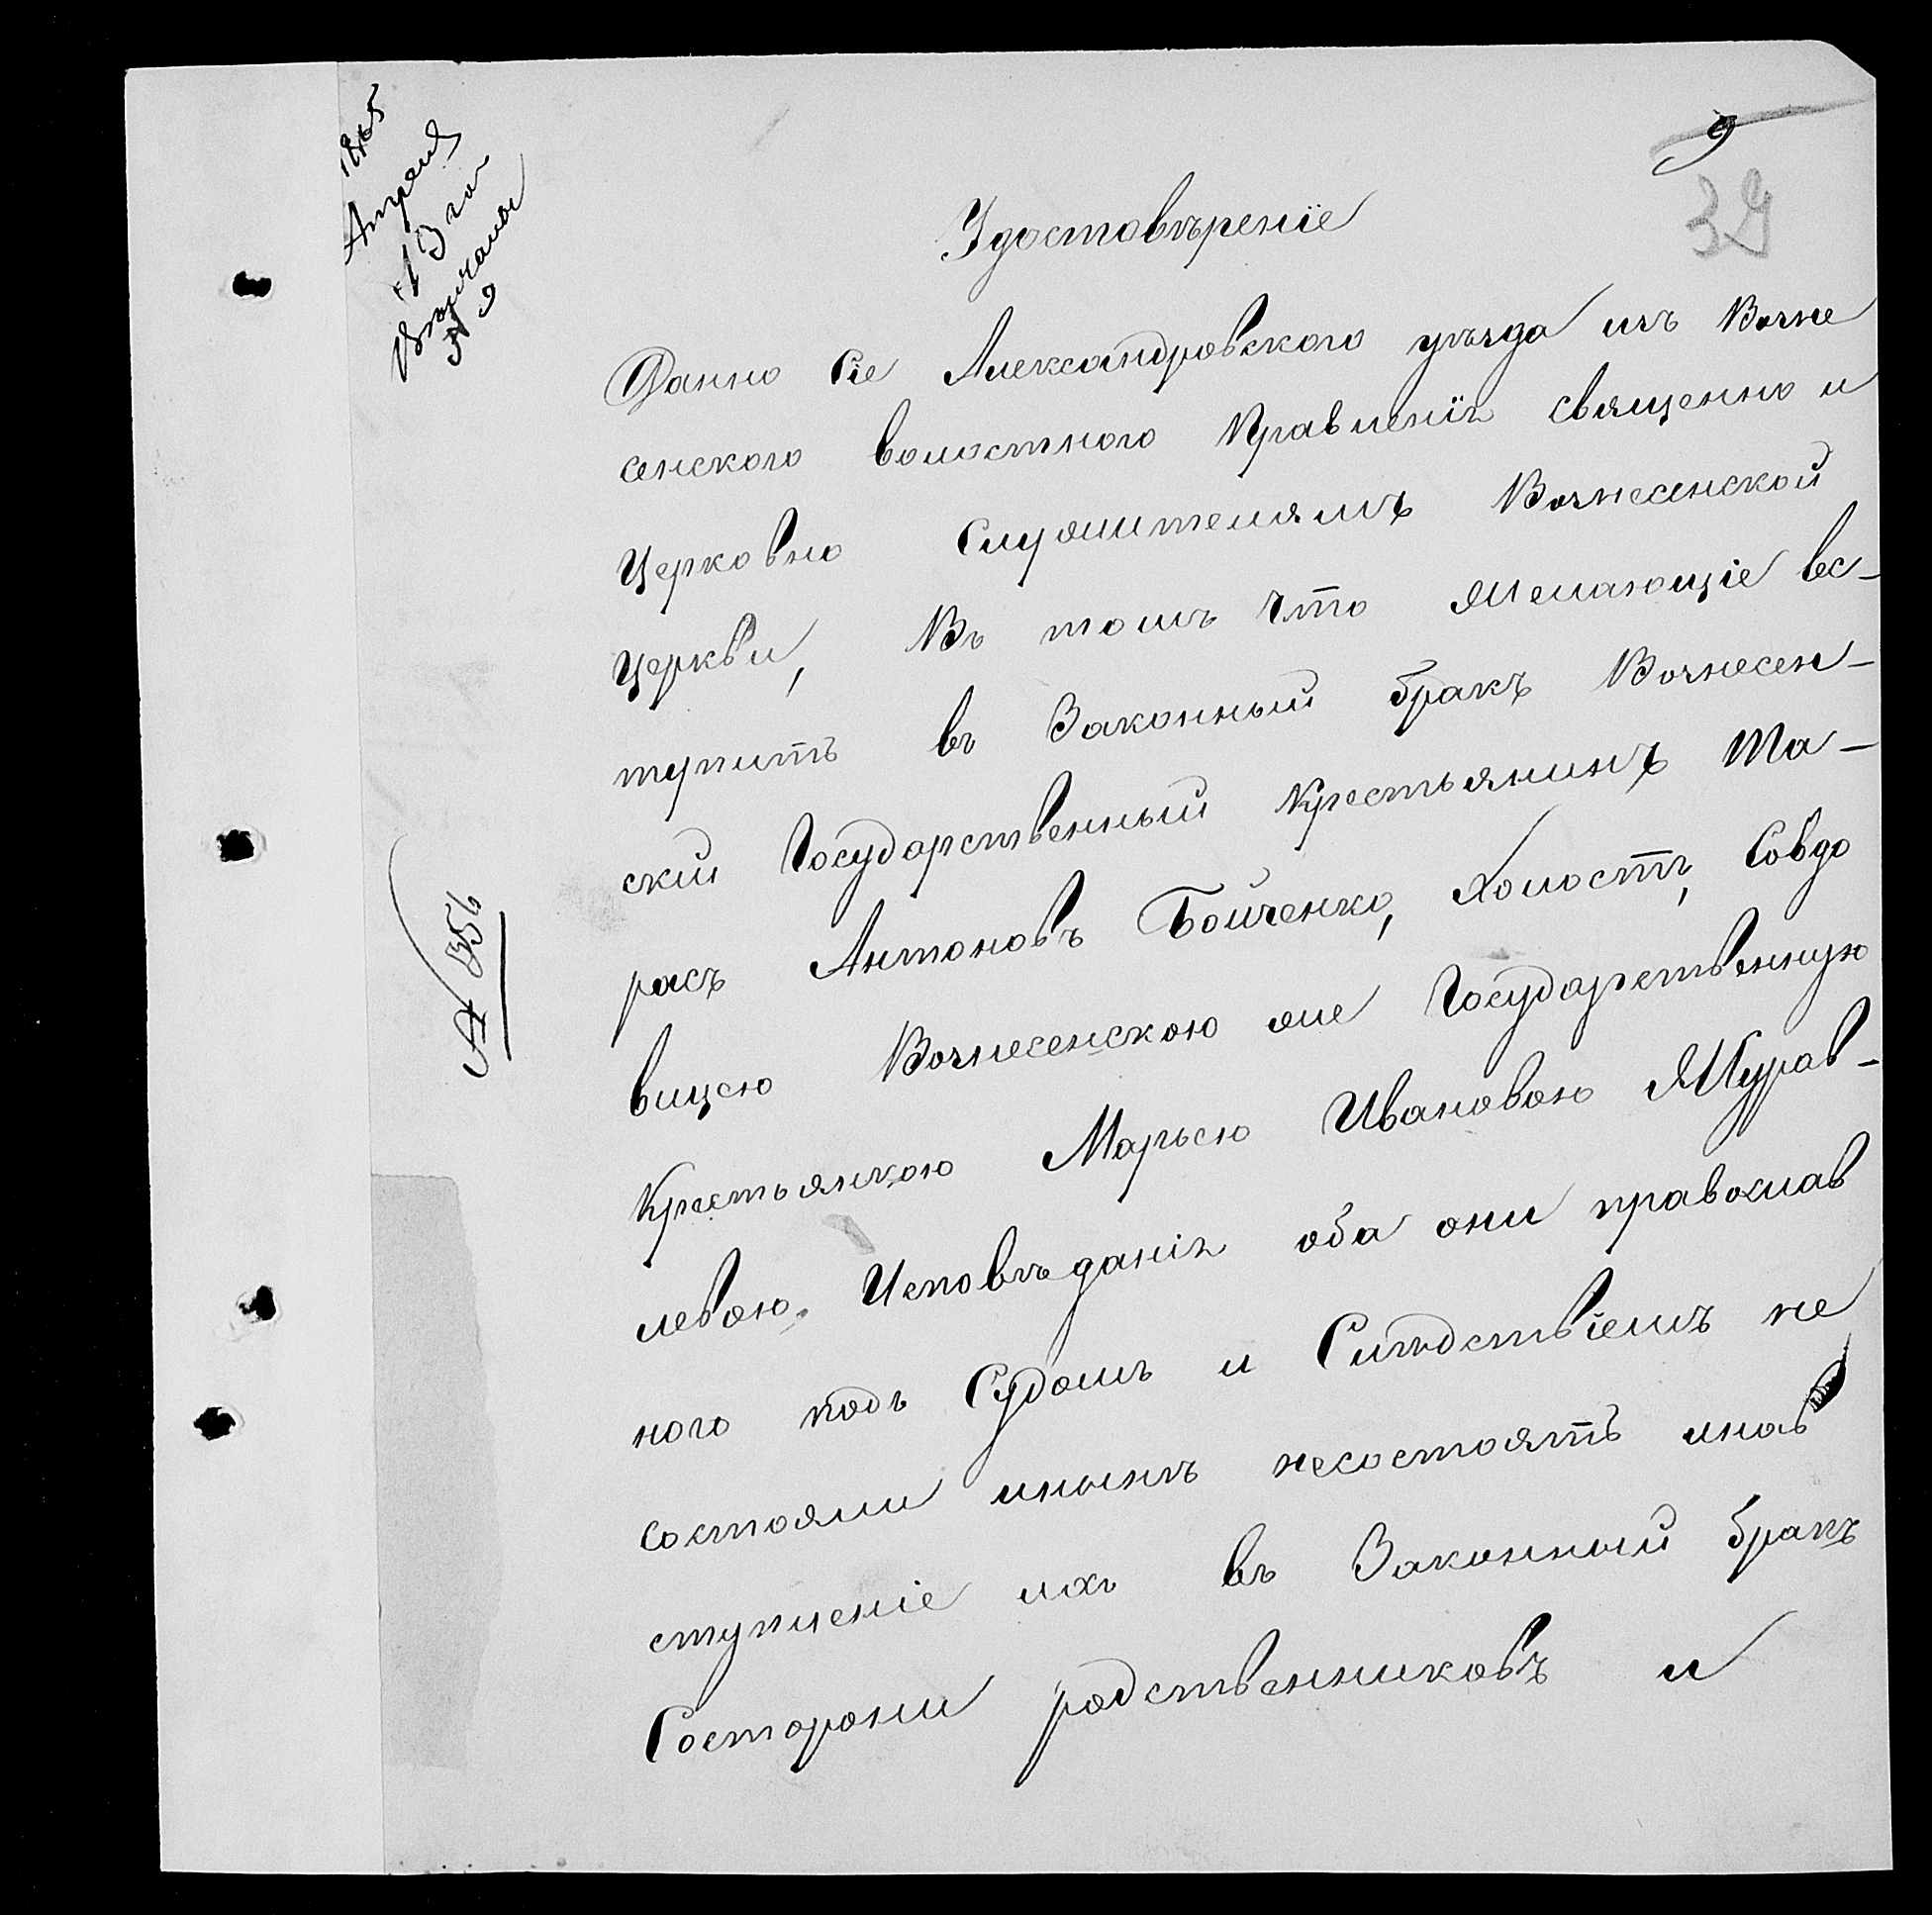 1865
Апреля
13 го
Венчаны
№ 9
9
39
Удостовѣреніе
Данно сіе Александровского уѣзда изъ Возне
сенского волостного Правленія священно и
Церковно служителямъ Вознесенской
Церкви, Въ томъ что желающіе вс-
тупить въ Законный бракъ Вознесен-
ский Государственный Крестьянинъ Та-
расъ Антоновъ Бойченко, холостъ, Совдо
вицею Вознесенскою же Государственную
Крестьянкою Марьею Ивановою Журав-
левою. Исповѣданія оба они православ
ного подъ Судомъ и Слѣдствіемъ не
состояли инынѣ несостоятъ инав
ступленіе ихъ въ Законный бракъ
Состороны родственниковъ и
№ 356